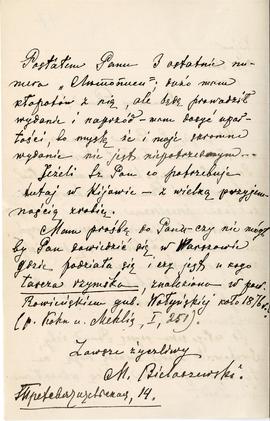 Posłałem Panu 3 ostatnie nu-
mera „Лѣтописи”; dużo mam
kłopotów z nią, ale będę prowadził
wydanie i naprzód – mam dosyć upar-
tości, bo myślę że i moje skromne
wydanie nie jest niepotrzebnym...
Jeżeli Sz Pan co potrzebuje
tutaj w Kijowie – z wielką przyjem-
nością zrobię.
Mam prośbę do Pana – czy nie mógł
by Pan dowiedzieć się w Warszawie
gdzie podziała się i czy jest u kogo
tarcza rzymska, znaleziona w pow.
Kowieńskiém gub. Wołyńskiej koło 1876 r.
(p. Kohn u. Mehlis, I, 251).
Zawsze życzliwy
M. Biełaszewski.
Трехсвятительская, 14.